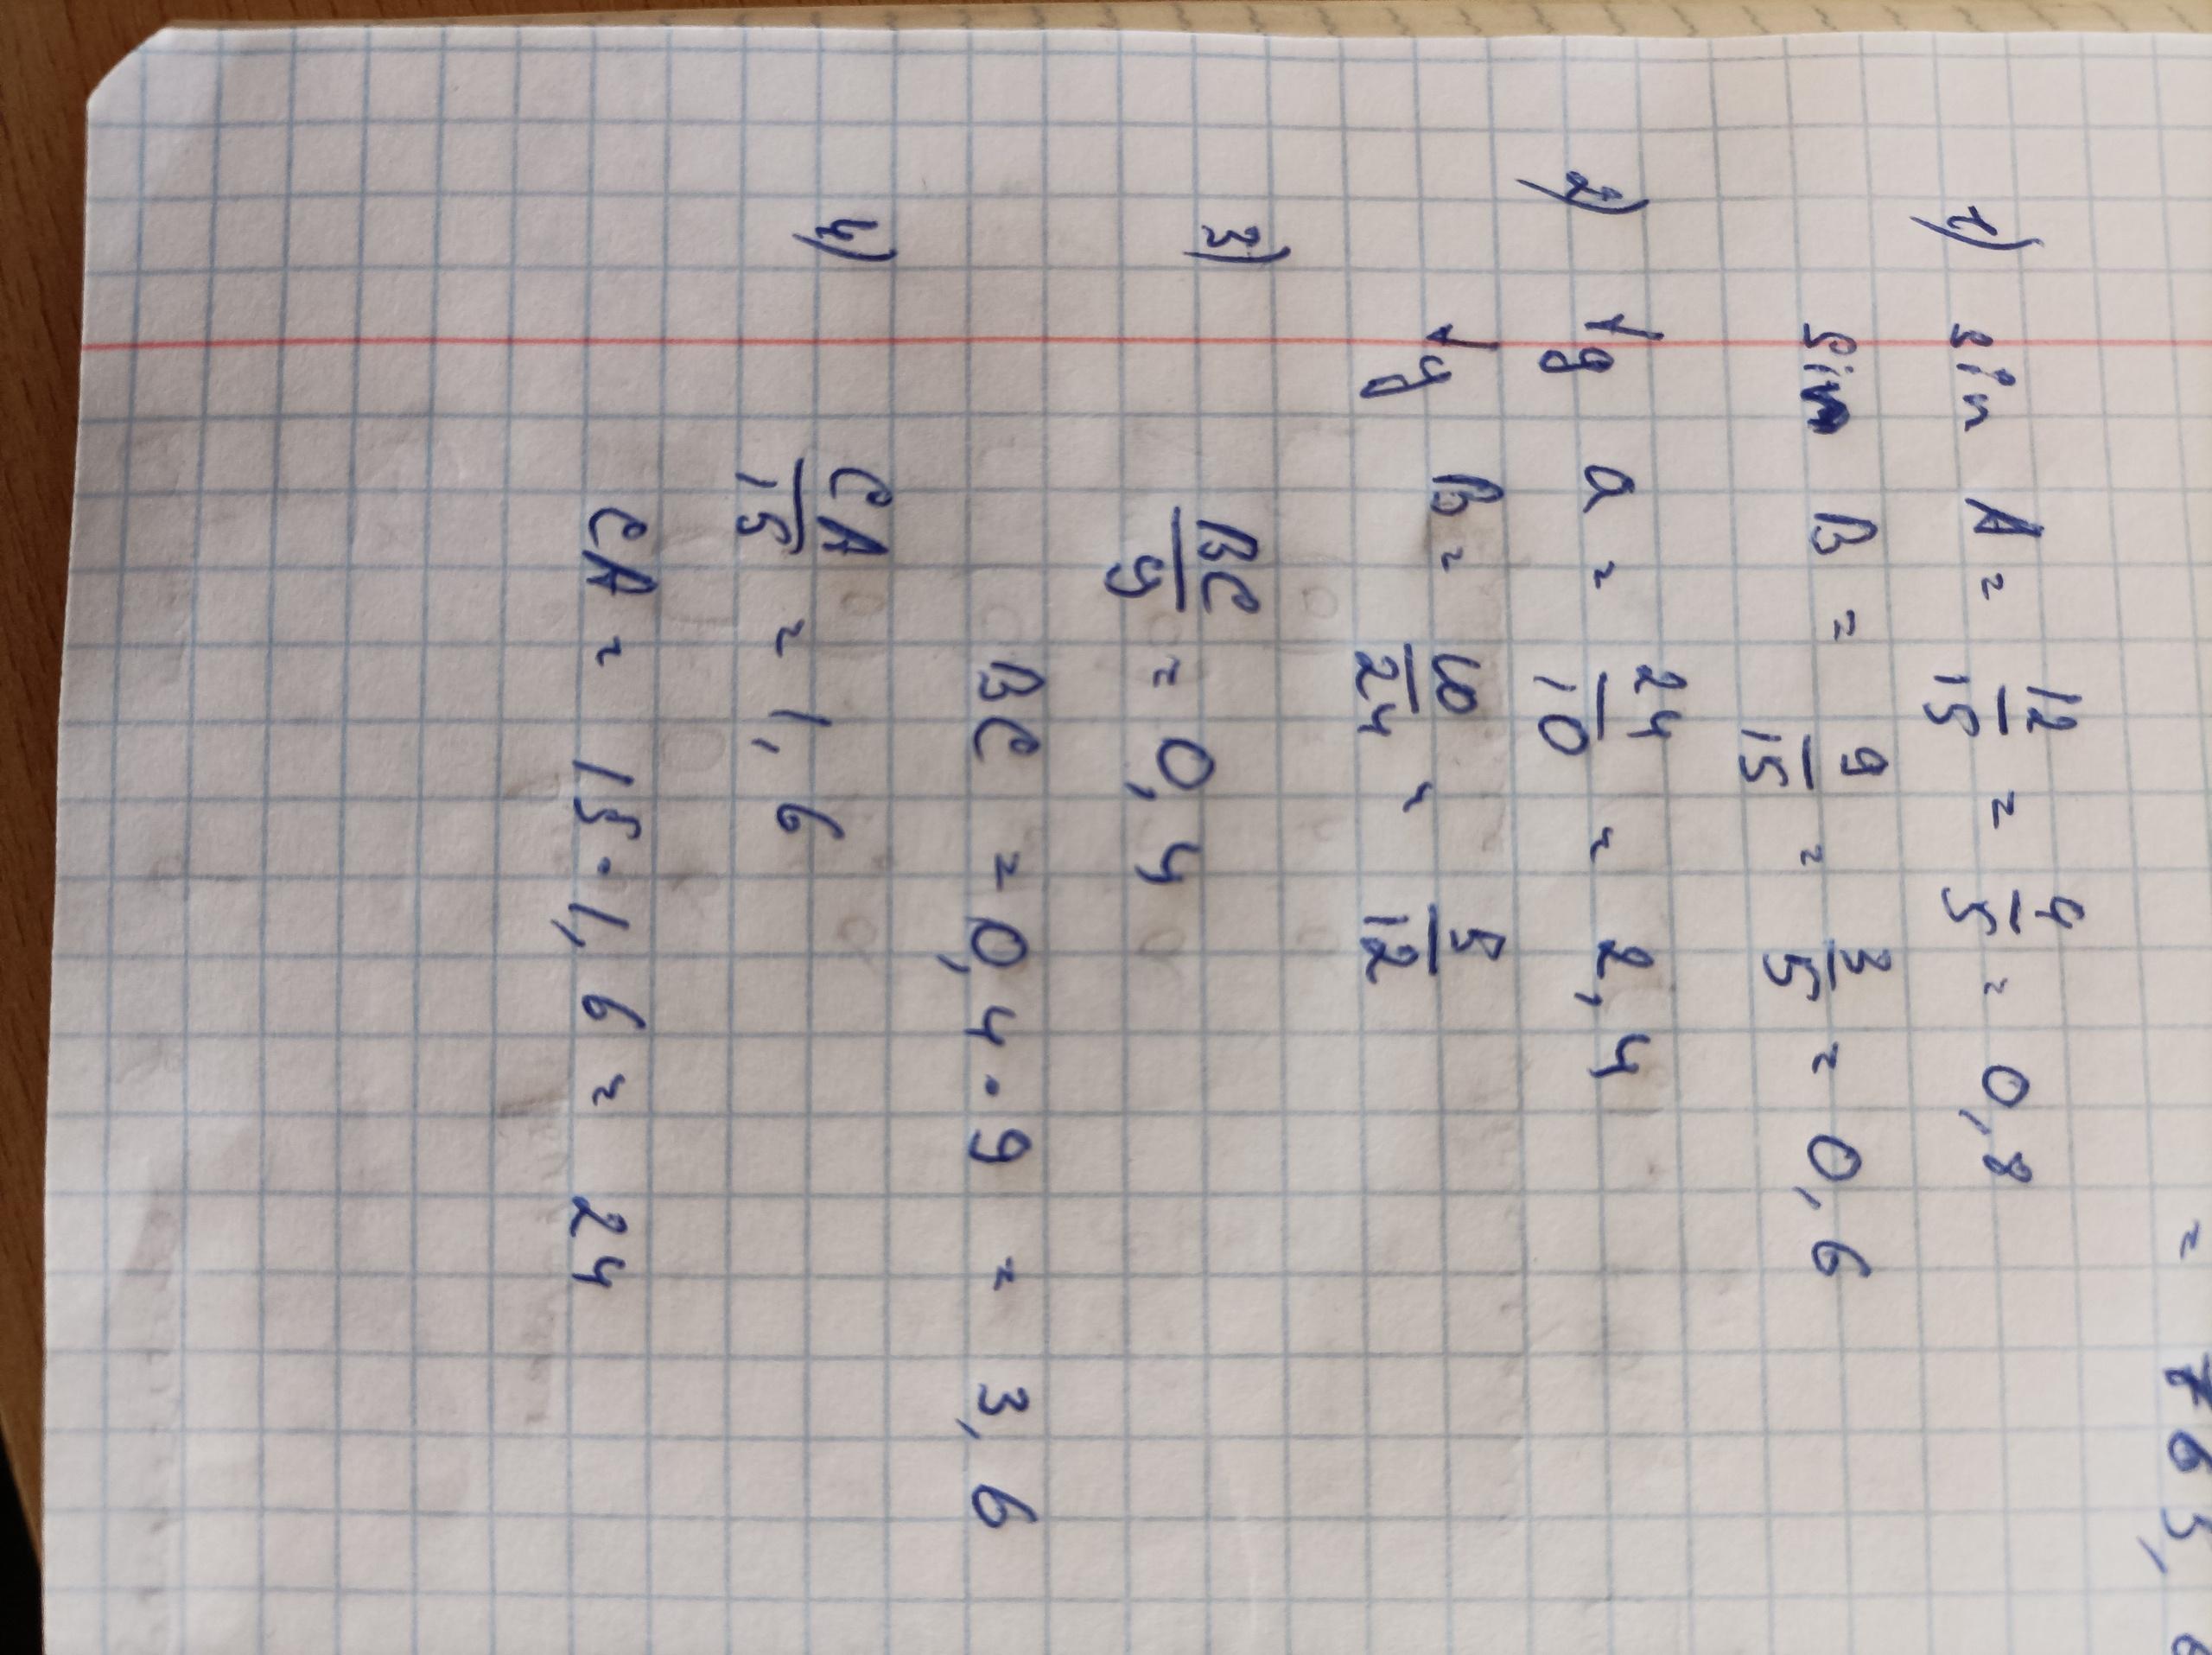 = 765,6
1) sin A = 12/15 = 4/5 = 0,8
sin B = 9/15 = 3/5 = 0,6
2) tg a = 24/10 = 2,4
tg B = 10/24 = 5/12
3) BC/9 = 0,4
BC = 0,4 · 9 = 3,6
4) CA/15 = 1,6
CA = 15 · 1,6 = 24